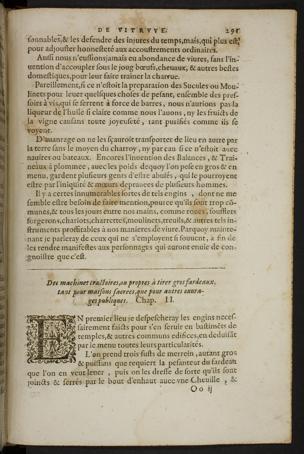 DE VITRVVE. 291
sonnables, & les defendre des iniures du temps, mais, qui plus est,
pour adiouster honnesteté aux accoustrements ordinaires.
Aussi nous n'eussions iamais eu abondance de viures, sans l'in-
uention d'accoupler sous le ioug bœufs, cheuaux, & autres bestes
domestiques, pour leur faire trainer la charrue.
Pareillement, si ce n'estoit la preparation des Sucules ou Mou-
linets pour leuer quelques choses de pesant, ensemble des pres-
soirs à vis, qui se serrent à force de barres, nous n'aurions pas la
liqueur de l'huile si claire comme nous l'auons, ny les fruicts de
la vigne causans toute ioyeuseté, tant purifiés comme ils se
voyent.
D'auantage on ne les sçauroit transporter de lieu en autre par
la terre sans le moyen du charroy, ny par eau si ce n'estoit auec
nauires ou bateaux. Encores l'inuention des Balances, & Trai-
neaux à plommée, auec les poids dequoy l'on pese en gros & en
menu, gardent plusieurs gens d'estre abusés, qui le pourroyent
estre par l'iniquité & mœurs depraueés de plusieurs hommes.
Il y a certes innumerables fortes de tels engins, dont ne me
semble estre besoin de faire mention, pource qu'ils sont trop cō-
muns, & tous les iours entre nos mains, comme roues, soufflets
forgerons, chariots, charrettes, moulinets, treuils, & autres tels in-
struments proffitables à nos manieres de viure. Parquoy mainte-
nant ie parleray de ceux qui ne s'employent si souuent, à fin de
les rendre manifestes aux personnages qui auront enuie de con-
gnoistre que c'est.
Des machines tractoires, ou propres à tirer gros fardeaux,
tant pour maisons sacrées, que pour autres ouura-
ges publiques. Chap. II.
EN premier lieu ie despescheray les engins neces-
sairement faicts pour s'en seruir en bastimēts de
temples, & autres communs edifices, en deduisāt
par le menu toutes leurs particularités.
L'on prend trois fusts de merrein, autant gros
& puissans que requiert la pesanteur du fardeau
que l'on en veut leuer, puis on les dresse de sorte qu'ils sont
ioincts & serrés par le bout d'enhaut auec vne Cheuille, &
Oo ij